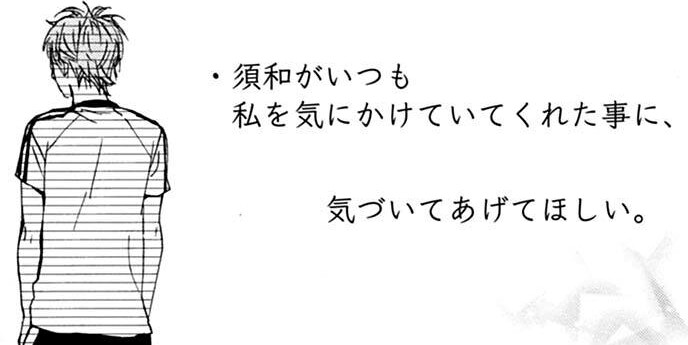 ・須和がいつも
私を気にかけていてくれた事に、
気づいてあげてほしい。